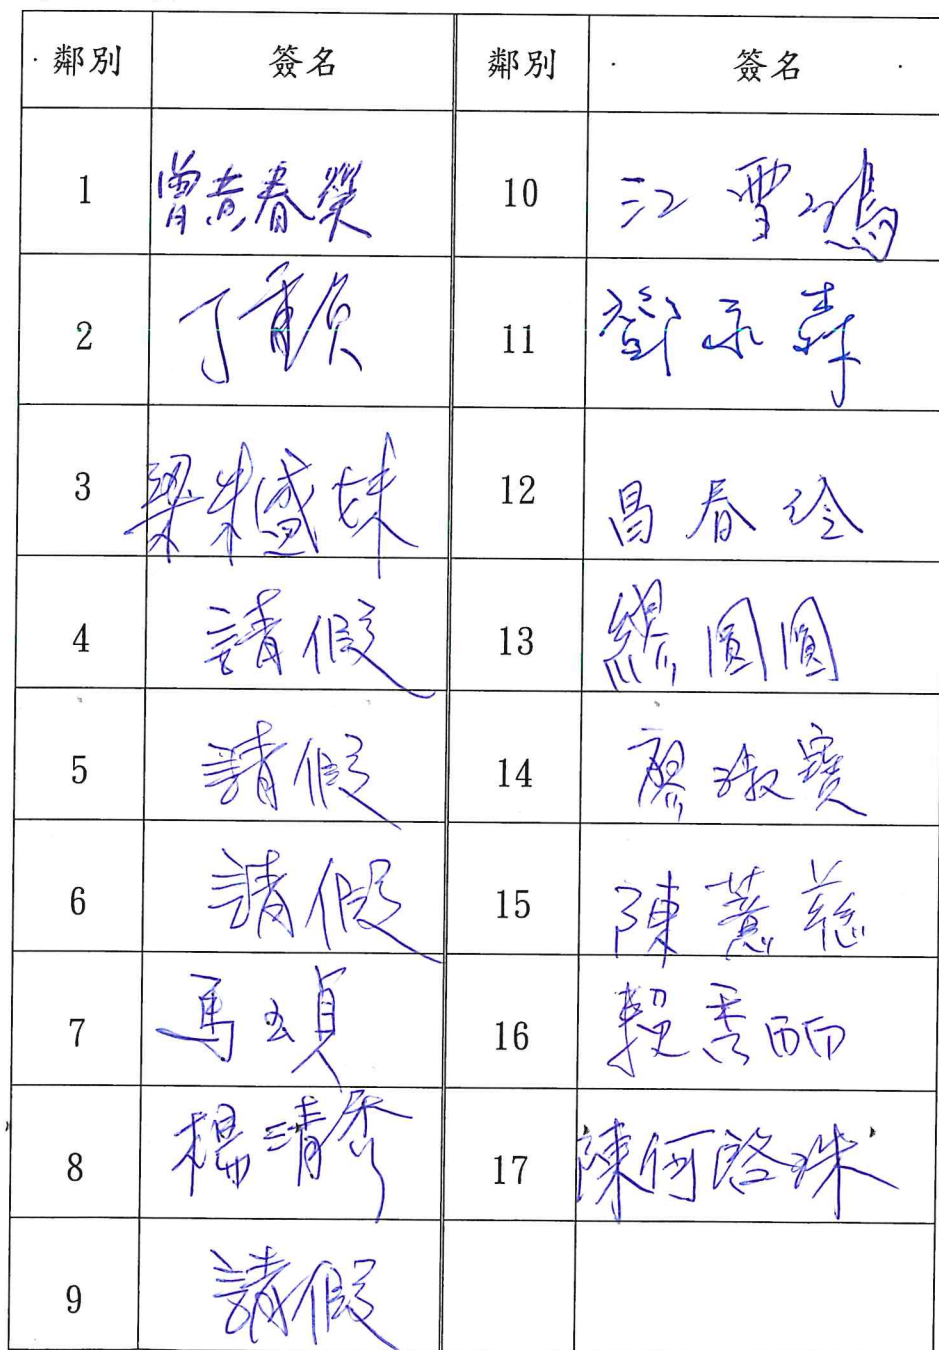 鄰別 簽名 鄰別 簽名
1 曾黃春榮 10 江雪鴻
2 丁重貞 11 鄧永森
3 梁朱盛妹 12 呂春玲
4 請假 13 繆圓圓
5 請假 14 廖淑寶
6 請假 15 陳薏慈
7 馬玉貞 16 賴秀丽
8 楊清秀 17 陳何啓珠
9 請假